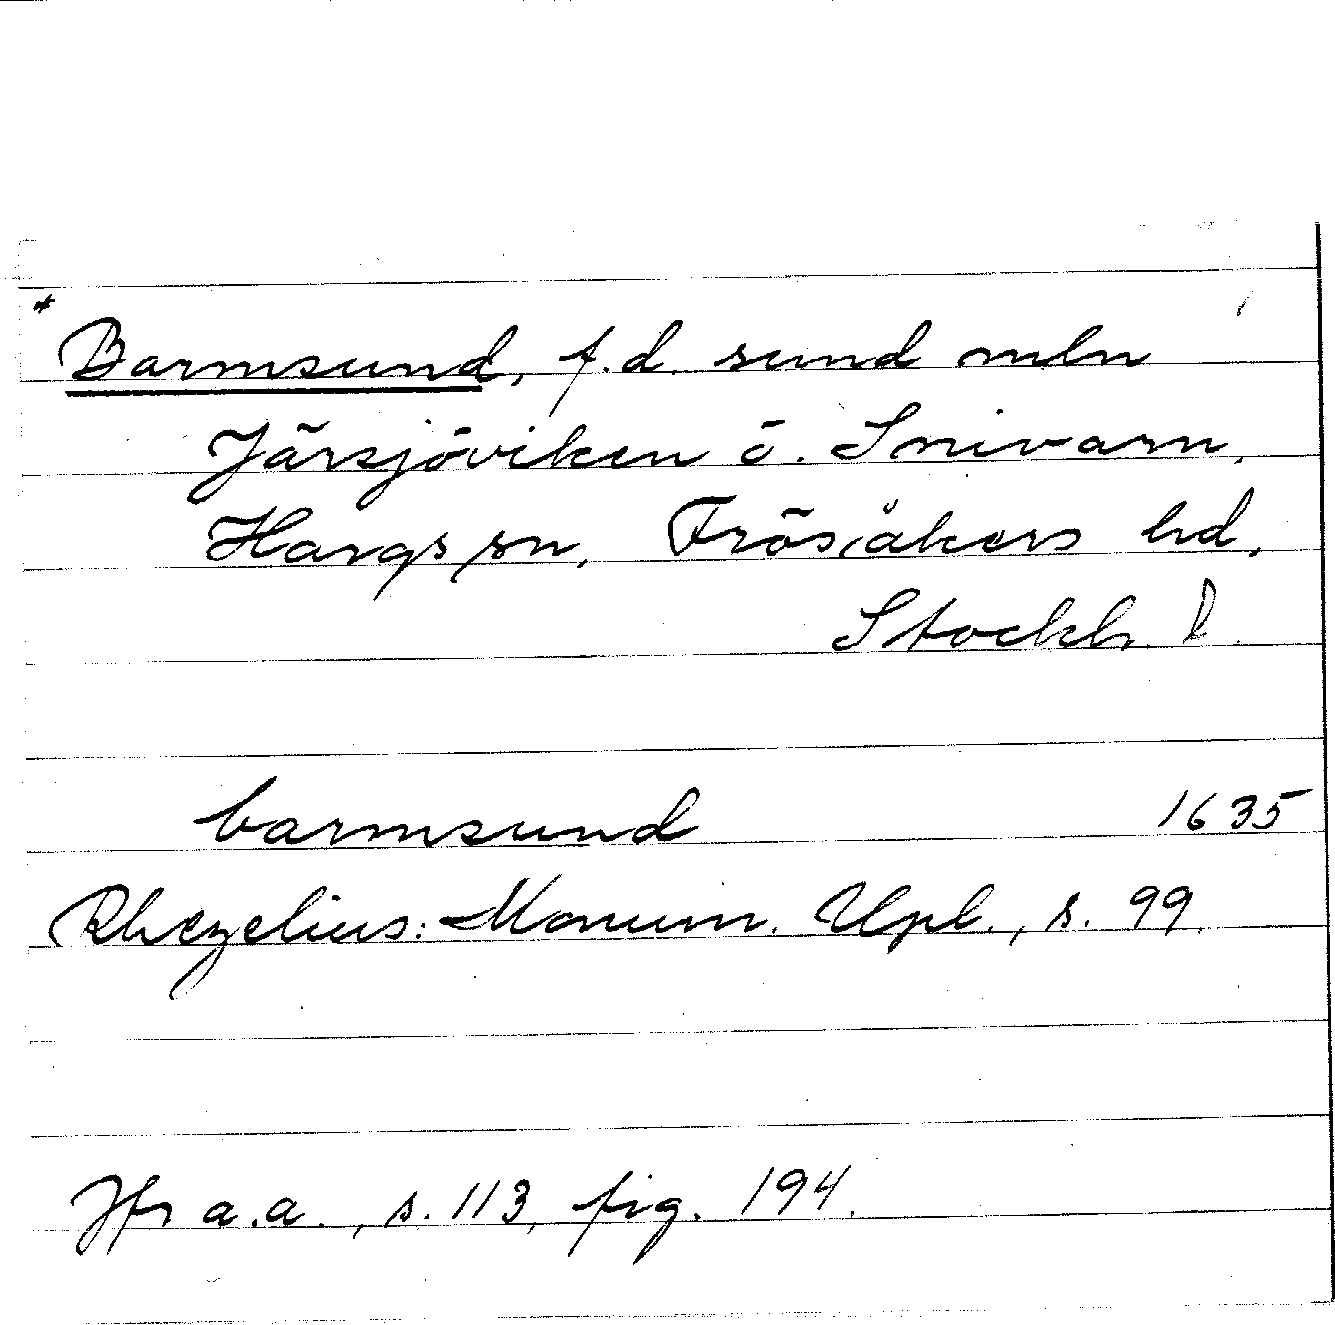 * Barmsund, f.d. sund mln
Järsjöviken o. Snivarn,
Hargs sn, Frösåkers hd,
Stockh. l.
barmsund 1635
Rhezelius: Monum. Upl., s. 99.
Jfr a.a., s. 113, fig. 194.